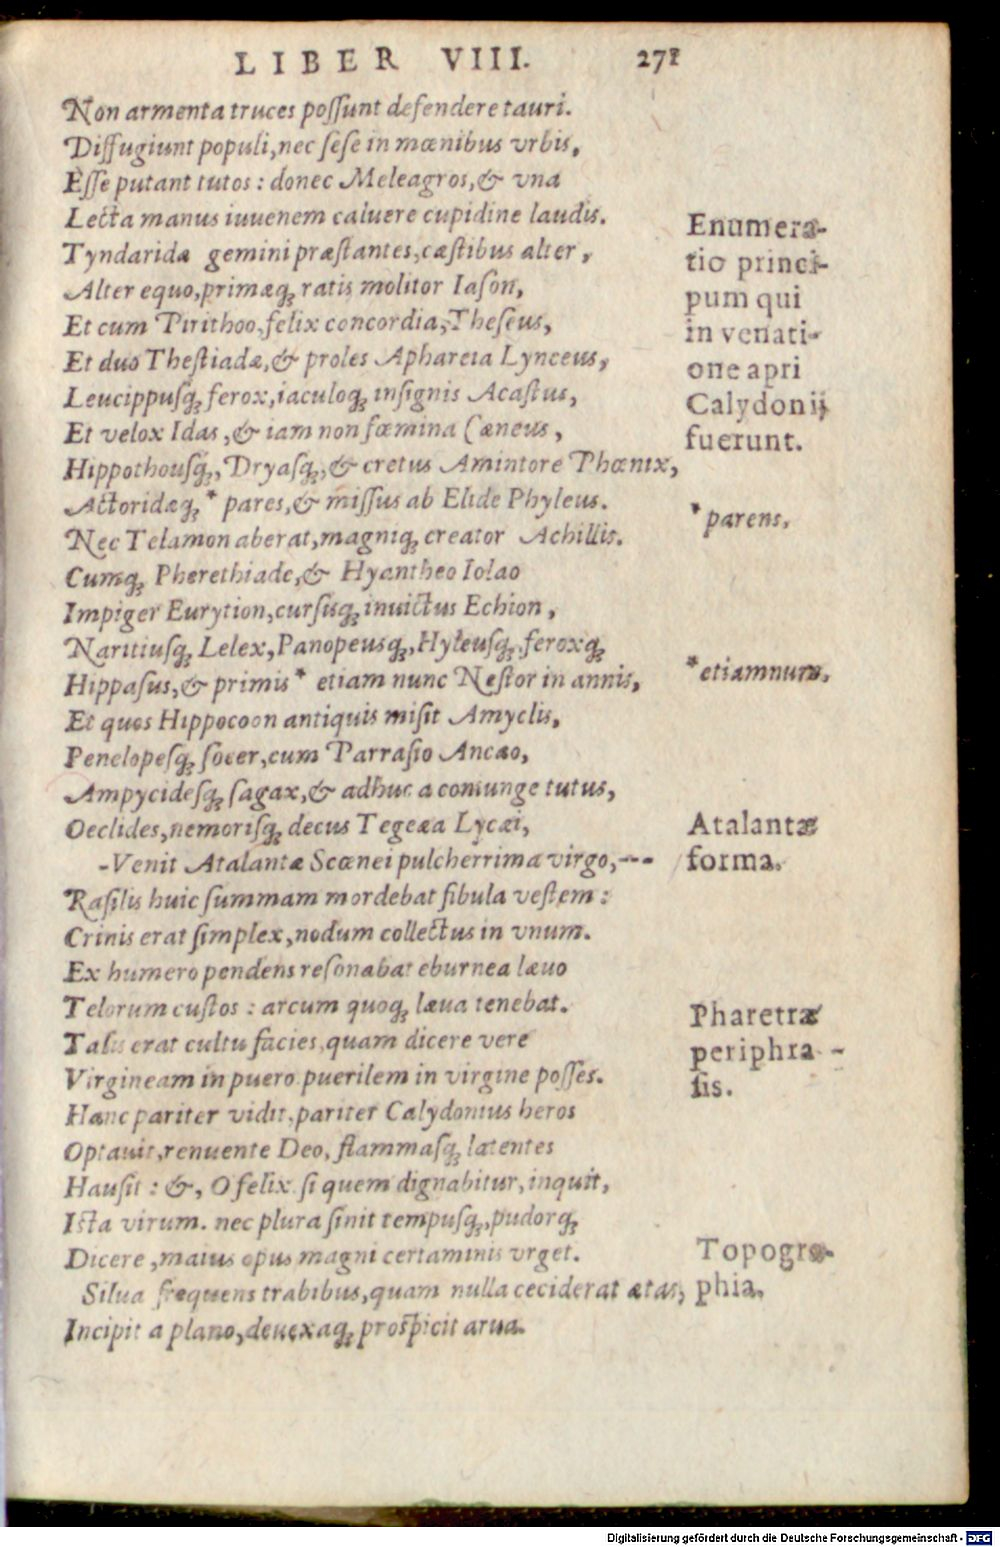 LIBER VIII. 271
Non armenta truces possunt defendere tauri.
Diffugiunt populi, nec sese in mœnibus vrbis,
Esse putant tutos: donec Meleagros, & vna
Lecta manus iuuenem caluere cupidine laudis.
Tyndaridæ gemini præstantes, cæstibus alter,
Alter equo, primæq; ratis molitor Iason,
Et cum Pirithoo, felix concordia, Theseus,
Et duo Thestiadæ, & proles Aphareia Lynceus,
Leucippusq; ferox, iaculoq; insignis Acastus,
Et velox Idas, & iam non fœmina Cæneus,
Hippothousq;, Dryasq;, & cretus Amintore Phœnix,
Actoridæq; * pares, & missus ab Elide Phyleus.
Nec Telamon aberat, magniq; creator Achillis.
Cumq; Pherethiade, & Hyantheo Iolao
Impiger Eurytion, cursuq; inuictus Echion,
Naritiusq; Lelex, Panopeusq;, Hyleusq;, feroxq;
Hippasus, & primis * etiam nunc Nestor in annis,
Et quos Hippocoon antiquis misit Amyclis,
Penelopesq; socer, cum Parrasio Ancæo,
Ampycidesq; sagax, & adhuc a coniunge tutus,
Oeclides, nemorisq; decus Tegeæa Lycæi,
-Venit Atalantæ Scœnei pulcherrima virgo,---
Rasilis huic summam mordebat fibula vestem:
Crinis erat simplex, nodum collectus in vnum.
Ex humero pendens resonabat eburnea læuo
Telorum custos: arcum quoq; læua tenebat.
Talis erat cultu facies, quam dicere vere
Virgineam in puero, puerilem in virgine posses.
Hanc pariter vidit, pariter Calydonius heros
Optauit, renuente Deo, flammasq; latentes
Hausit: &, O felix si quem dignabitur, inquit,
Ista virum. nec plura sinit tempusq;, pudorq;
Dicere, maius opus magni certaminis vrget.
Silua frequens trabibus, quam nulla ceciderat ætas,
Incipit a plano, deuexaq; prospicit arua.
Enumera-
tio princi-
pum qui
in venati-
one apri
Calydonij
fuerunt.
* parens.
* etiamnum.
Atalantæ
forma.
Pharetræ
periphra-
sis.
Topogra-
phia.
Digitalisierung gefördert durch die Deutsche Forschungsgemeinschaft - DFG